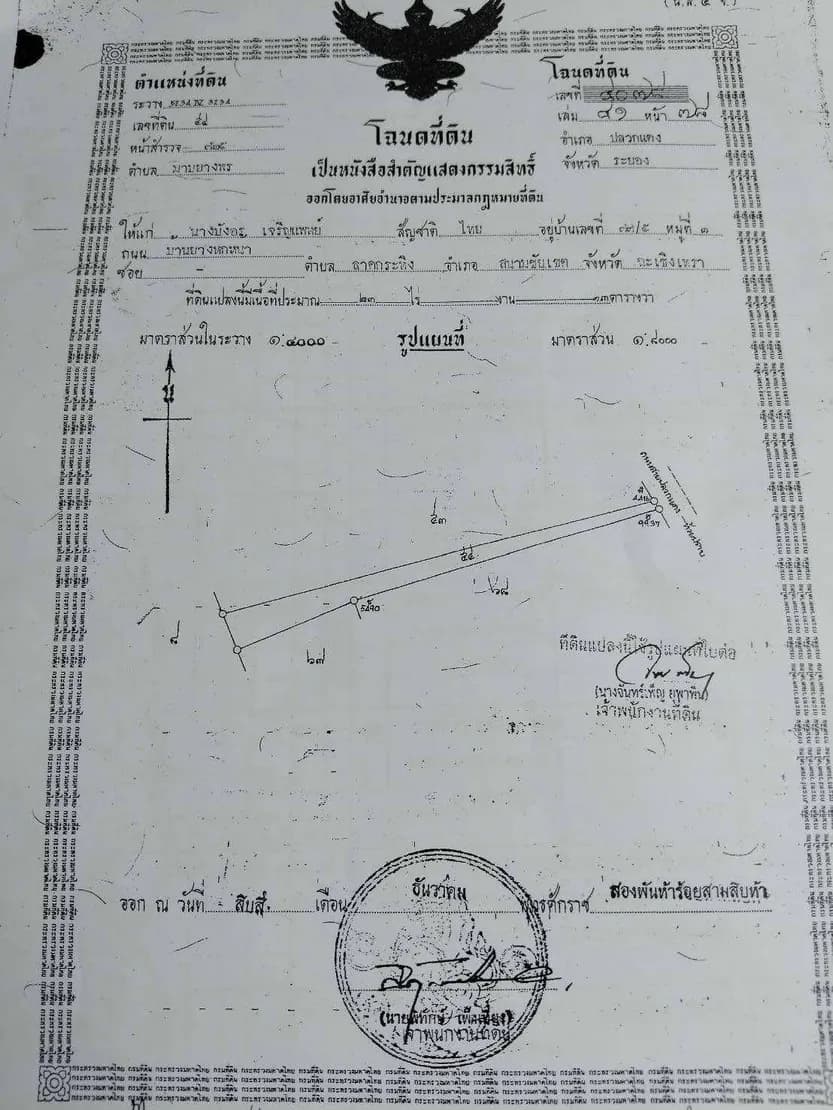 (น.ส. ๔ จ.)
ตำแหน่งที่ดิน
ระวาง 5234 IV 5234
เลขที่ดิน ๕๔
หน้าสำรวจ
ตำบล มาบยางพร
โฉนดที่ดิน
เลขที่ ๔๐๗๘
เล่ม ๔๑ หน้า ๗๘
อำเภอ ปลวกแดง
จังหวัด ระยอง
โฉนดที่ดิน
เป็นหนังสือสำคัญแสดงกรรมสิทธิ์
ออกโดยอาศัยอำนาจตามประมวลกฎหมายที่ดิน
ให้แก่ นางบังอร เจริญแพทย์ สัญชาติ ไทย อยู่บ้านเลขที่ หมู่ที่ ๑
ถนน บ้านยาง
ซอย - ตำบล ลาดกระทิง อำเภอ สนามชัยเขต จังหวัด ฉะเชิงเทรา
ที่ดินแปลงนี้มีเนื้อที่ประมาณ ๒๓ ไร่ - งาน ๑๓ ตารางวา
มาตราส่วนในระวาง ๑:๔๐๐๐ รูปแผนที่ มาตราส่วน ๑:๘๐๐๐
น
๕๓
๕๔
๖๘
๘
๖๗
ที่ดินแปลงนี้ใช้รูปแผนที่ใบต่อ
(นางจันทร์เพ็ญ ยุพาพิน)
เจ้าพนักงานที่ดิน
ออก ณ วันที่ สิบสี่ เดือน ธันวาคม พุทธศักราช สองพันห้าร้อยสามสิบห้า
เจ้าพนักงานที่ดิน